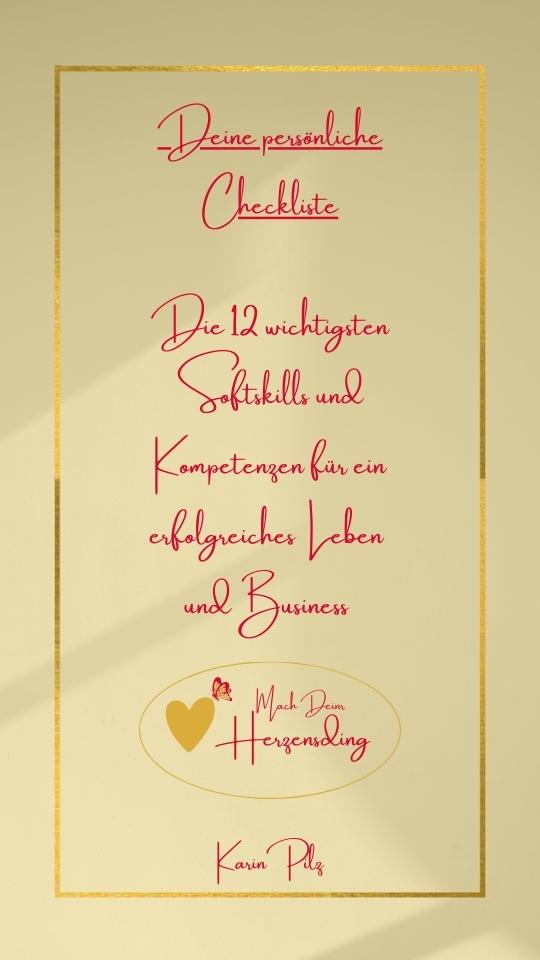 Deine persönliche
Checkliste
Die 12 wichtigsten
Softskills und
Kompetenzen für ein
erfolgreiches Leben
und Business
Mach Deim
Herzensding
Karin Pilz